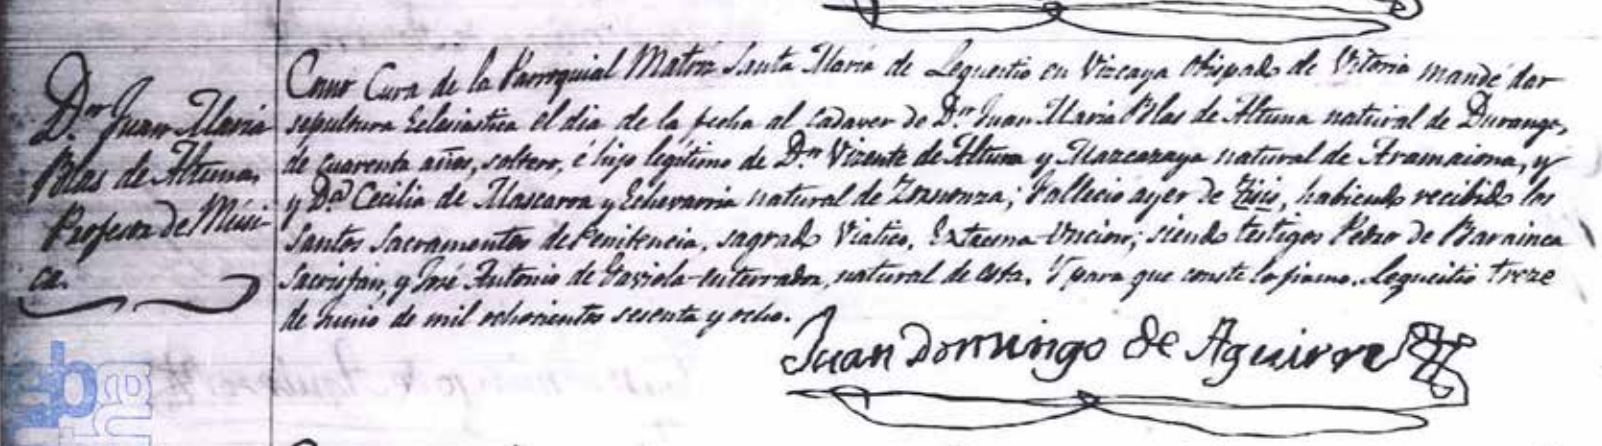 Dn. Juan Maria
Blas de Altuna,
Profesor de Músi-
ca.
Como Cura de la Parroquial Matriz Santa Maria de Lequeitio en Vizcaya Obispado de Vitoria mandé dar
sepultura Eclesiastica el dia de la fecha al cadaver de Dn. Juan Maria Blas de Altuna natural de Durango,
de cuarenta años, soltero, é hijo legitimo de Dn. Vizente de Altuna y Mazcaraya natural de Aramaiona, y
y Da. Cecilia de Mascarra y Echevarria natural de Zornonza; falleció ayer de, habiendo recibido los
Santos Sacramentos de Penitencia, sagrado Viatico, Extrema-Uncion; siendo testigos Pedro de Barainca
Sacristan, y José Antonio de Gaviola-enterrador, natural de esta. Y para que conste lo firmo. Lequeitio treze
de Junio de mil ochocientos sesenta y ocho.
Juan Domingo de Aguirre